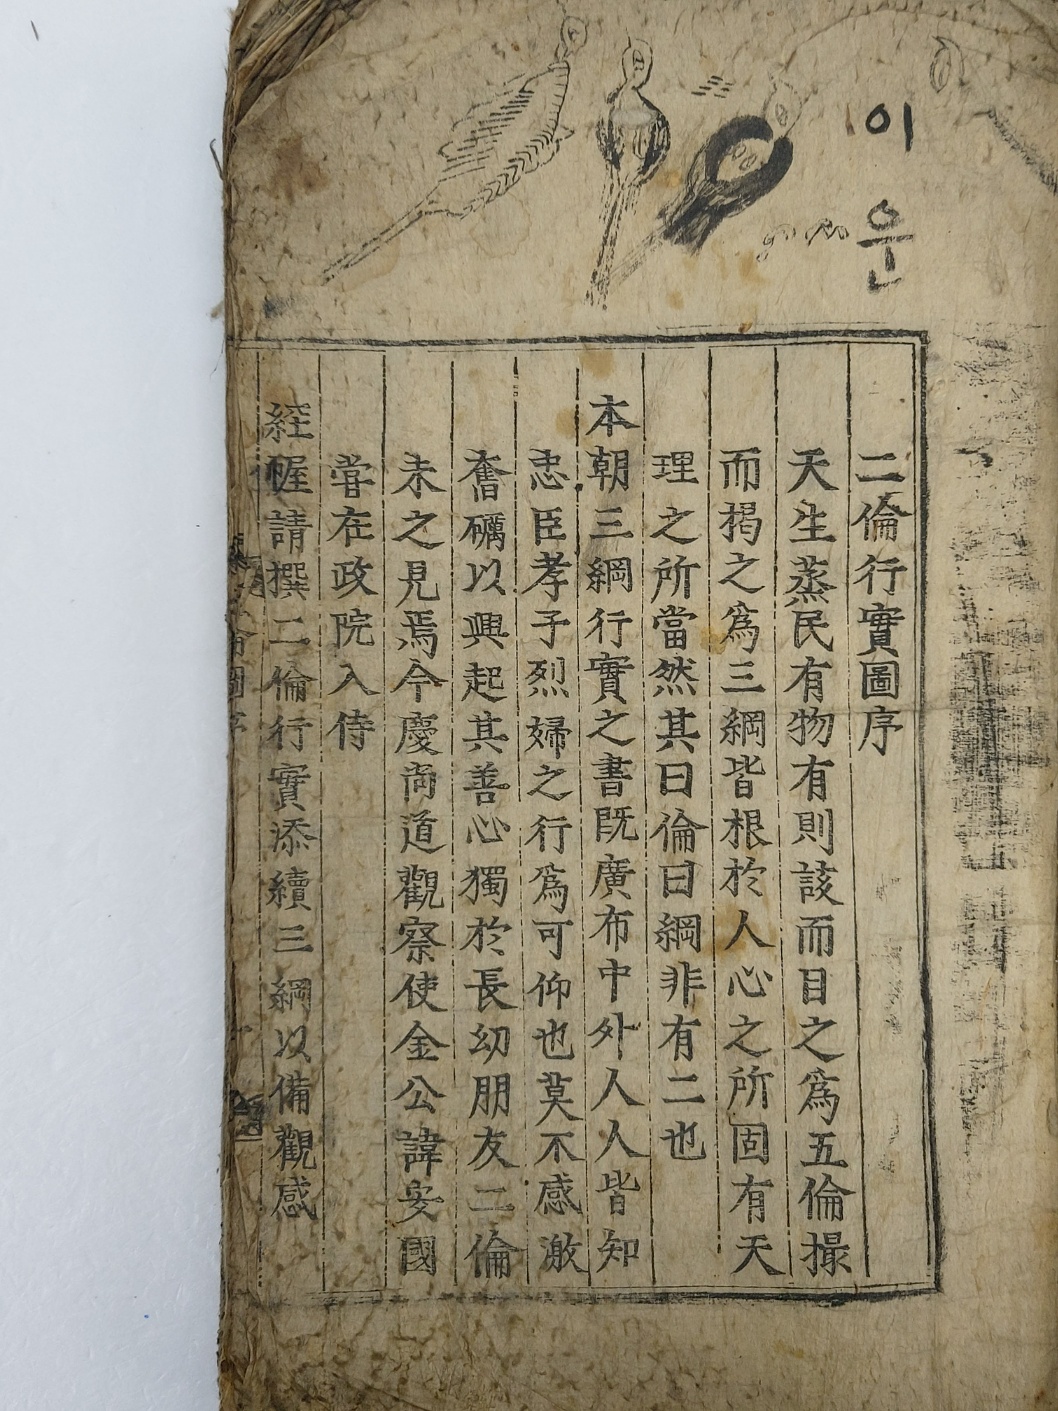 이
윤
二倫行實圖序
天生蒸民有物有則該而目之爲五倫撮
而揭之爲三綱皆根於人心之所固有天
理之所當然其曰倫曰綱非有二也
本朝三綱行實之書既廣布中外人人皆知
忠臣孝子烈婦之行爲可仰也莫不感激
奮礪以興起其善心獨於長幼朋友二倫
未之見焉今慶尙道觀察使金公諱安國
嘗在政院入侍
経幄請撰二倫行實添續三綱以備觀感